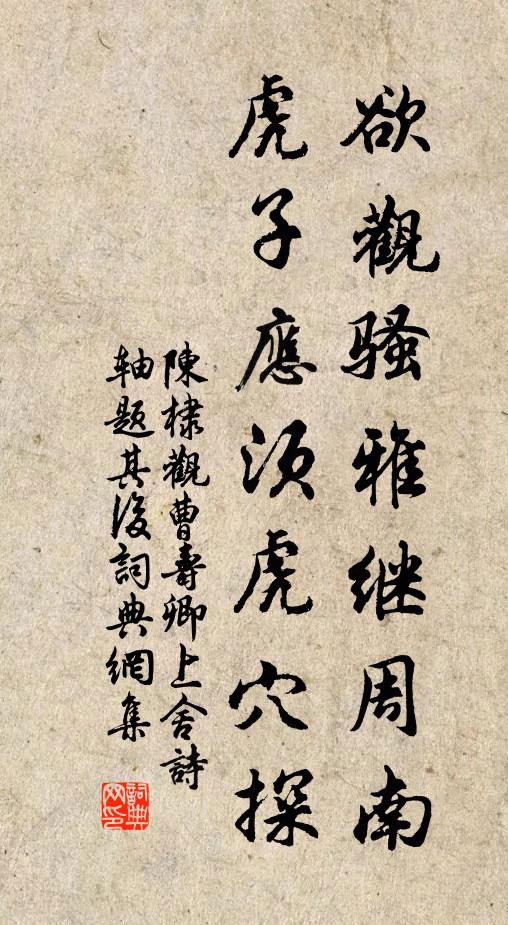 欲觀騷雅继周南
虎子應須虎穴探
陳棣觀曹壽卿上舍詩
軸題其後詞典網集
詞典
网印